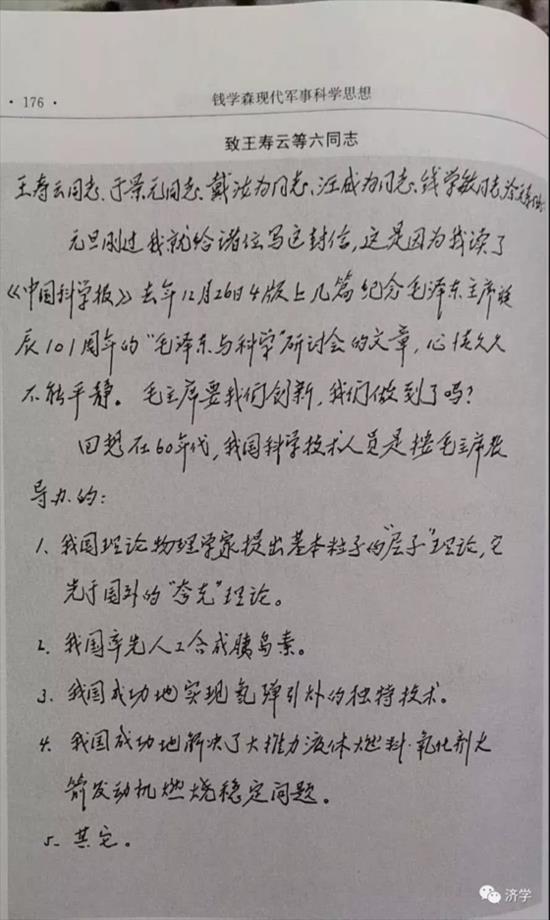 · 176 ·
钱学森现代军事科学思想
致王寿云等六同志
王寿云同志、于景元同志、戴汝为同志、汪成为同志、钱学敏同志、涂元季同志：
元旦刚过我就给诸位写这封信，这是因为我读了
《中国科学报》去年12月26日4版上几篇纪念毛泽东主席诞
辰101周年的“毛泽东与科学”研讨会的文章，心情久久
不能平静。毛主席要我们创新，我们做到了吗？
回想在60年代，我国科学技术人员是按毛主席教
导办的：
1. 我国理论物理学家提出基本粒子的“层子”理论，它
先于国外的“夸克”理论。
2. 我国率先人工合成胰岛素。
3. 我国成功地实现氢弹引爆的独特技术。
4. 我国成功地解决了大推力液体燃料·氧化剂火
箭发动机燃烧稳定问题。
5. 其它。
济学